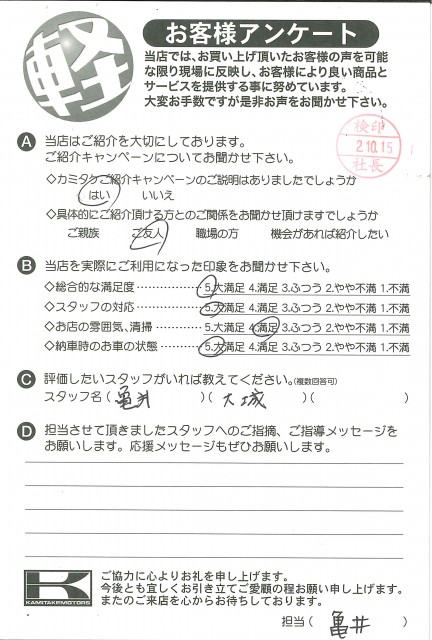 軽
お客様アンケート
当店では、お買い上げ頂いたお客様の声を可能
な限り現場に反映し、お客様により良い商品と
サービスを提供する事に努めています。
大変お手数ですが是非お声をお聞かせ下さい。
検印
2.10.15
社長
A 当店はご紹介を大切にしております。
ご紹介キャンペーンについてお聞かせ下さい。
◇カミタケご紹介キャンペーンのご説明はありましたでしょうか
はい いいえ
◇具体的にご紹介頂ける方とのご関係をお聞かせ頂けますでしょうか
ご親族 ご友人 職場の方 機会があれば紹介したい
B 当店を実際にご利用になった印象をお聞かせ下さい。
◇総合的な満足度 ……………… 5.大満足 4.満足 3.ふつう 2.やや不満 1.不満
◇スタッフの対応 ……………… 5.大満足 4.満足 3.ふつう 2.やや不満 1.不満
◇お店の雰囲気、清掃 ………… 5.大満足 4.満足 3.ふつう 2.やや不満 1.不満
◇納車時のお車の状態 ………… 5.大満足 4.満足 3.ふつう 2.やや不満 1.不満
C 評価したいスタッフがいれば教えてください。(複数回答可)
スタッフ名 ( 亀井 )( 大城 )( )
D 担当させて頂きましたスタッフへのご指摘、ご指導メッセージを
お願いします。応援メッセージもぜひお願いします。
K
KAMITAKEMOTORS
ご協力に心よりお礼を申し上げます。
今後とも宜しくお引き立てご愛顧の程お願い申し上げます。
またのご来店を心からお待ちしております。
担当 ( 亀井 )